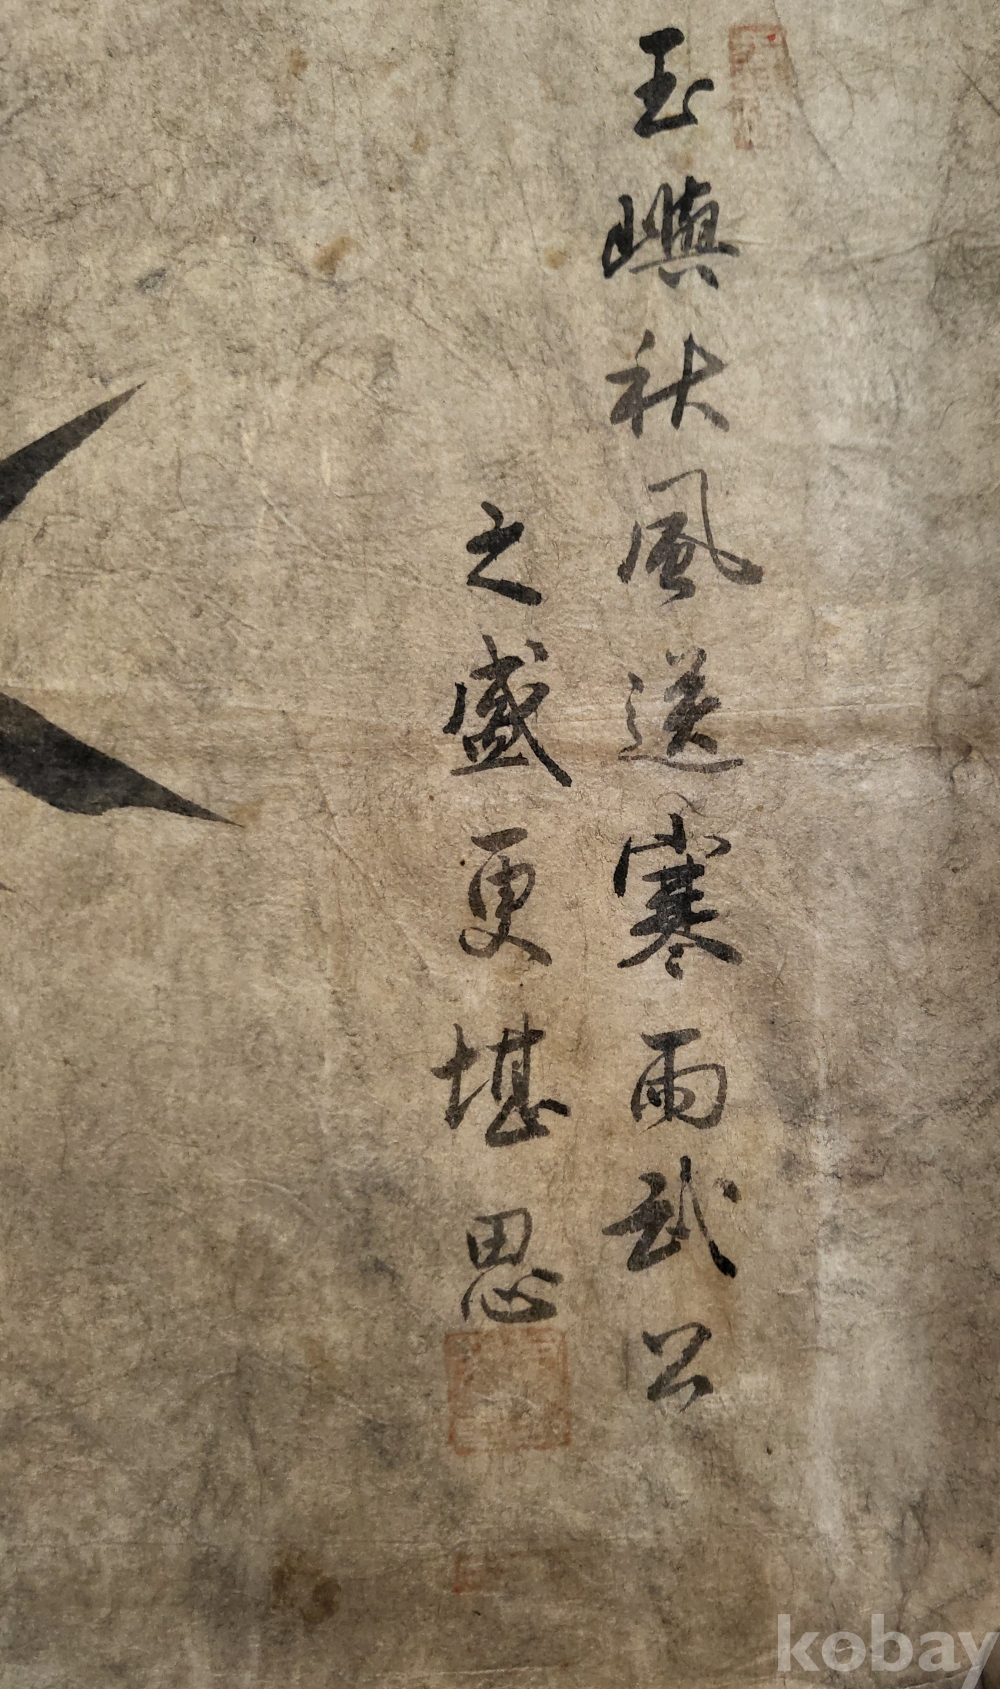 玉嶼秋風送寒雨武公
之盛更堪思
kobay